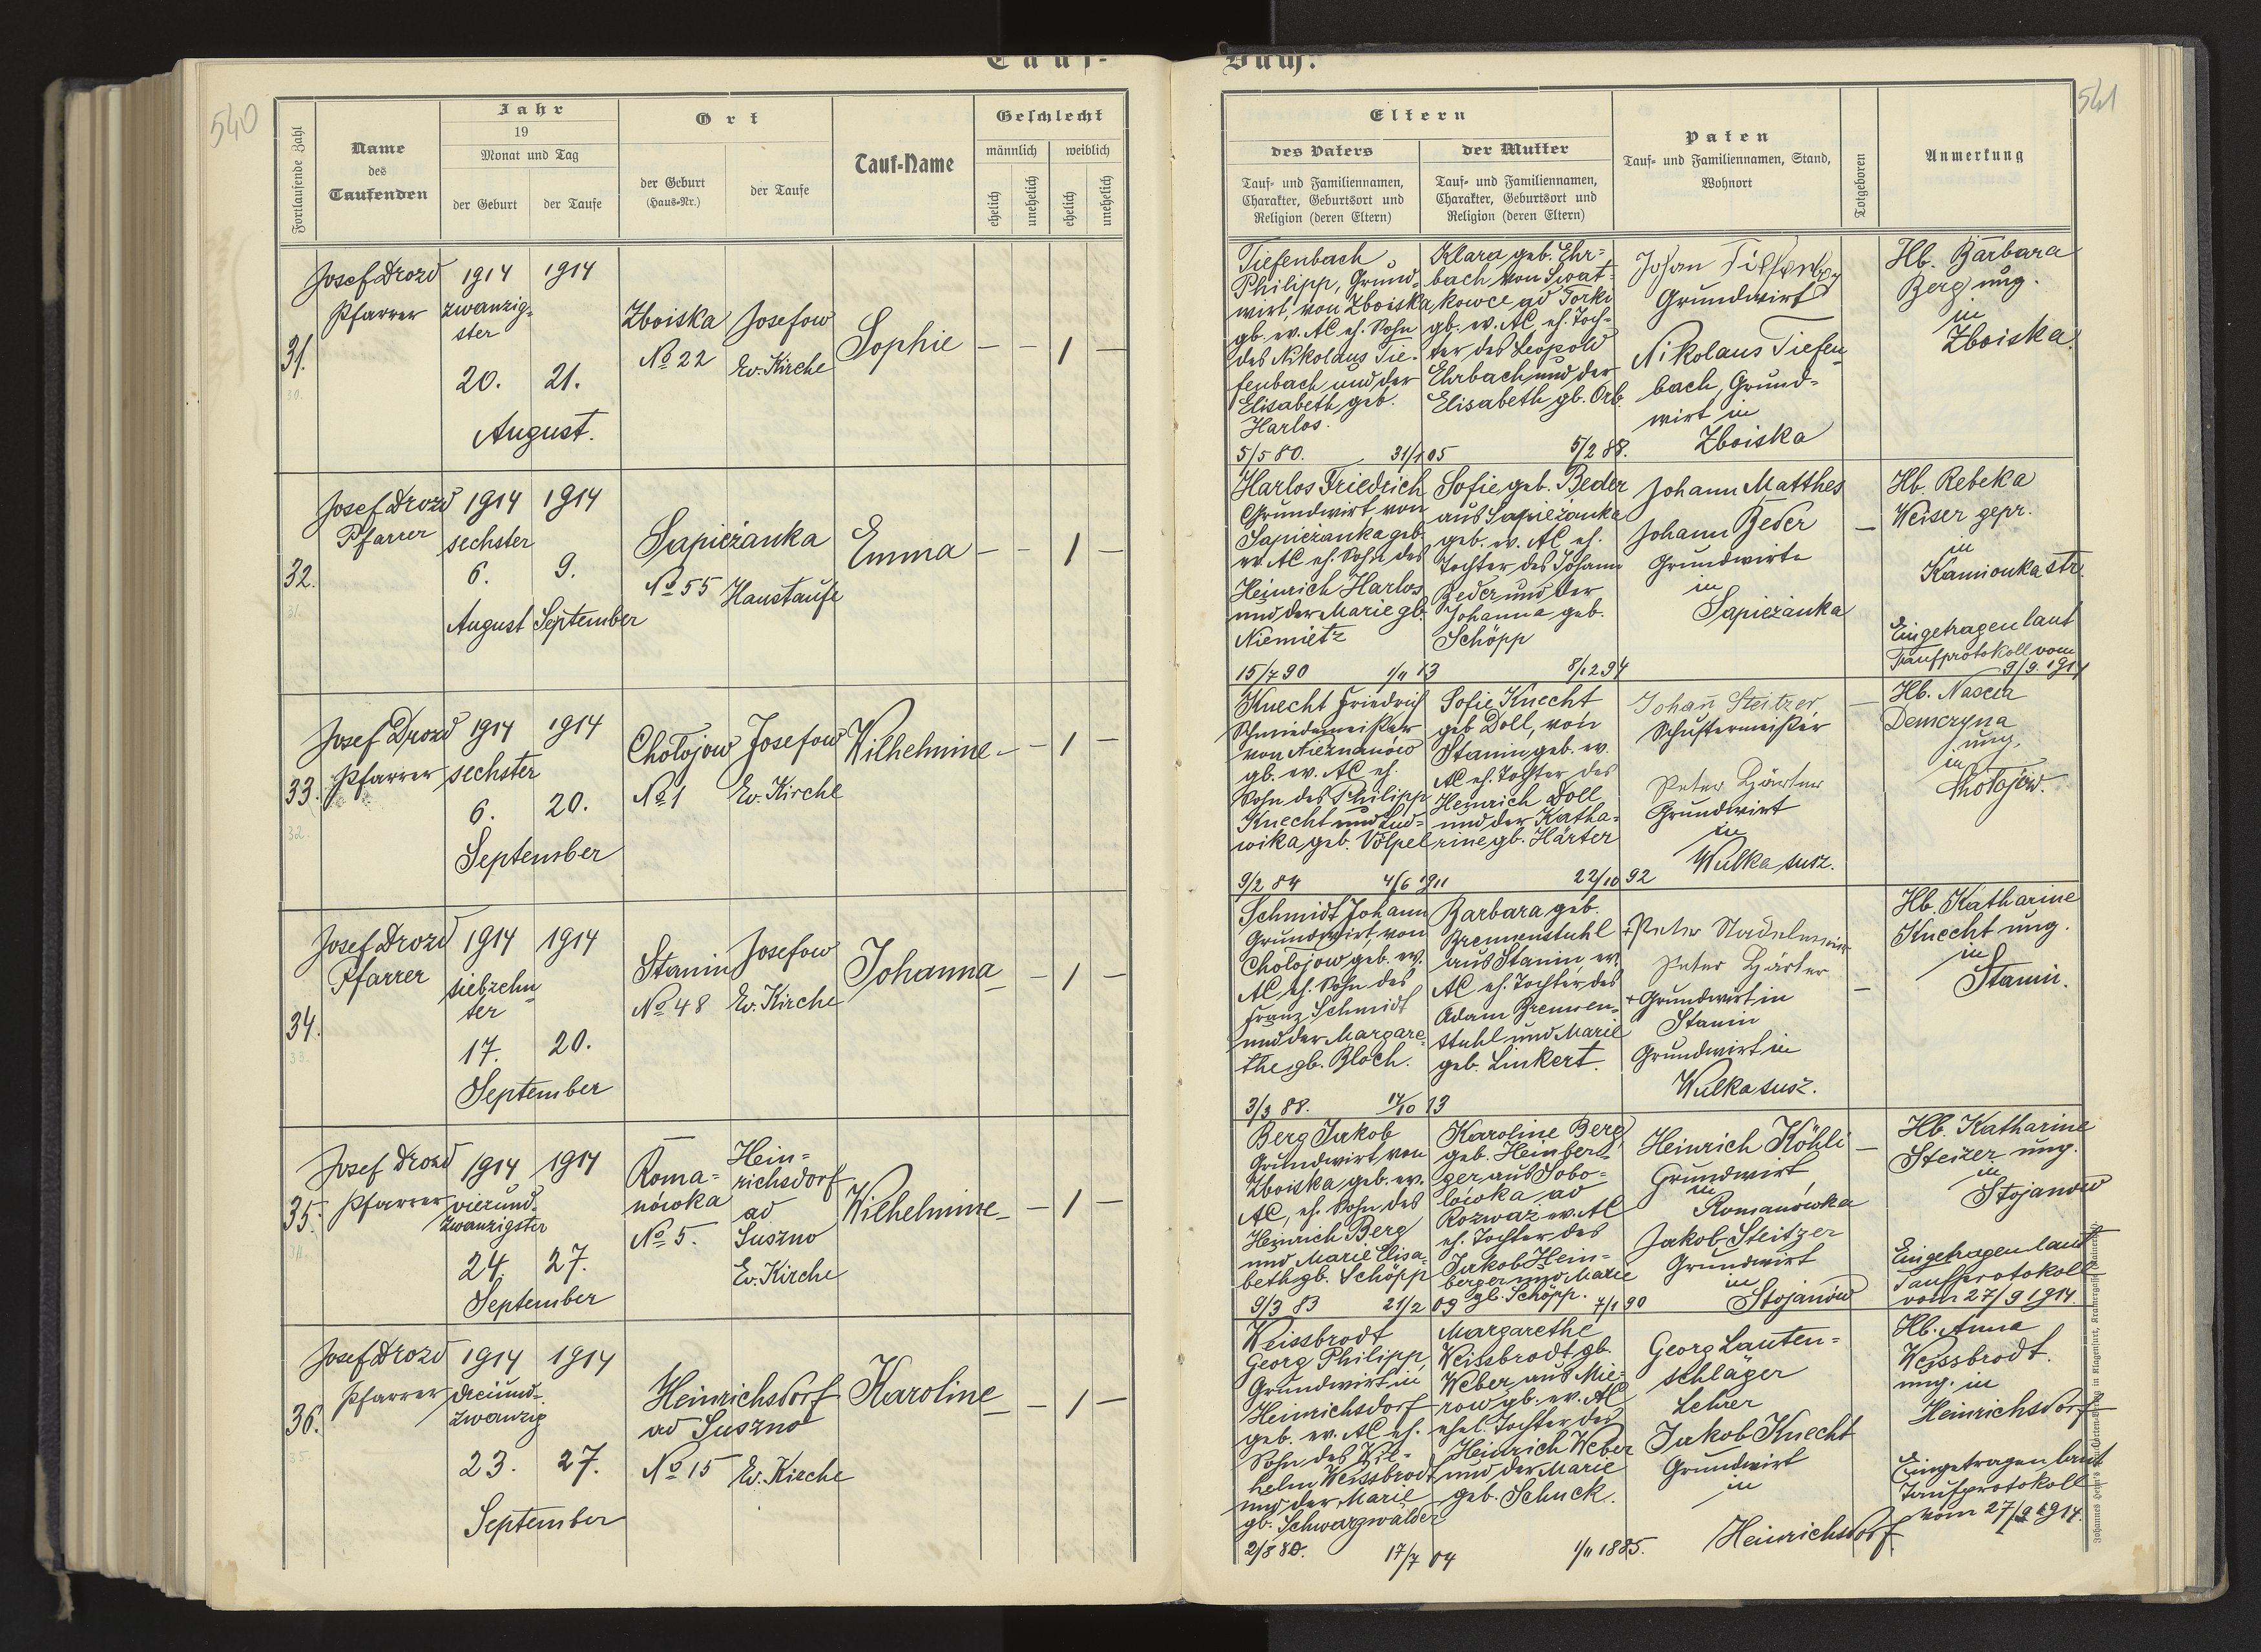 540
Tauf-
Fortlaufende Zahl
Name
des
Taufenden
Jahr
19
Monat und Tag
der Geburt
der Taufe
Ort
der Geburt
(Haus-Nr.)
der Taufe
Tauf-Name
Geschlecht
männlich
weiblich
ehelich
unehelich
ehelich
unehelich
31.
30.
Josef Drozd
Pfarrer
1914 1914
zwanzig-
ster
20. 21.
August.
Zboiska
No 22
Josefow
Ev. Kirche
Sophie
— — 1 —
32.
31.
Josef Drozd
Pfarrer
1914 1914
sechster
6. 9.
August September
Sapieżanka
No 55 Haustaufe
Emma
— — 1 —
33.
32.
Josef Drozd
Pfarrer
1914 1914
sechster
6. 20.
September
Chołojow
No 1
Josefow
Ev. Kirche
Wilhelmine
— — 1 —
34.
33.
Josef Drozd
Pfarrer
1914 1914
siebzehn-
ter
17. 20.
September
Stanin
No 48
Josefow
Ev. Kirche
Johanna
— — 1 —
35.
34.
Josef Drozd
Pfarrer
1914 1914
vierund-
zwanzigster
24. 27.
September
Roma-
nówka
No 5.
Hein-
richsdorf
ad
Suszno
Ev. Kirche
Wilhelmine
— — 1 —
36.
35.
Josef Drozd
Pfarrer
1914 1914
dreiund-
zwanzig
23. 27.
September
Heinrichsdorf
ad Suszno
No 15 Ev. Kirche
Karoline
— — 1 —
541
Buch.
Eltern
des Vaters
Tauf- und Familiennamen,
Charakter, Geburtsort und
Religion (deren Eltern)
der Mutter
Tauf- und Familiennamen,
Charakter, Geburtsort und
Religion (deren Eltern)
Paten
Tauf- und Familiennamen, Stand,
Wohnort
Totgeboren
Anmerkung
Tiefenbach
Philipp, Grund-
wirt, von Zboiska
gb. ev. AC eh. Sohn
des Nikolaus Tie-
fenbach und der
Elisabeth geb.
Harlos.
5/5 80. 31/1 05
Klara geb. Ehr-
bach von Swat-
kowce ad Torki
gb. ev. AC, eh. Toch-
ter des Leopold
Ehrbach und der
Elisabeth gb. Orb.
5/2 88.
Johan
Grundwirt
Nikolaus Tiefen-
bach, Grund-
wirt in
Zboiska
Hb. Barbara
Berg ung.
in
Zboiska.
Harlos Friedrich
Grundwirt von
Sapieżanka geb.
ev. AC eh. Sohn des
Heinrich Harlos
und der Marie gb.
Niemietz
15/7 90 1/11 13
Sofie geb. Beder
aus Sapieżanka
geb. ev. AC eh.
Tochter des Johann
Beder und der
Johanna geb.
Schöpp
8/12 94
Johann Matthes
Johann Beder
Grundwirte
in
Sapieżanka
—
Hb. Rebeka
Weiser gepr.
in
Kamionka str.
Eingetragen laut
Taufprotokoll vom
9/9. 1914
Knecht Friedrich
Schmiedemeister
von Nieznanów
gb. ev. AC eh.
Sohn des Philipp
Knecht und Lud-
wika geb. Völpel
9/2 84 4/6 1911
Sofie Knecht
geb Doll, von
Stanin geb. ev.
AC eh. Tochter des
Heinrich Doll
und der Katha-
rine gb. Härter
22/10 92
Johann Steitzer
Schustermeister
Peter Härter
Grundwirt
in
Wulka susz.
—
Hb. Nascia
Demczyna
ung.
in
Chołojów.
Schmidt Johann
Grundwirt, von
Cholojow geb. ev.
AC eh. Sohn des
Franz Schmidt
und der Margare-
the gb. Bloch.
3/3 88. 14/10 13
Barbara geb.
Brennenstuhl
aus Stanin, ev.
AC eh. Tochter des
Adam Brennen-
stuhl und Marie
geb. Linkert.
+ Peter Nadelmeier
Peter Härter
+ Grundwirt in
Stanin
Grundwirt in
Wulka susz.
—
Hb. Katharine
Knecht ung.
in
Stanin.
Berg Jakob
Grundwirt von
Zboiska geb. ev.
AC, eh. Sohn des
Heinrich Berg
und Marie Elisa-
beth gb. Schöpp
9/3 83 21/2 09
Karoline Berg
geb. Heinber-
ger aus Sobo-
lówka ad
Rozważ ev. AC
eh. Tochter des
Jakob Hein-
berger und Marie
gb. Schöpp.
7/1 90
Heinrich Köhli
Grundwirt
in
Romanówka
Jakob Steitzer
Grundwirt
in
Stojanów
—
Hb. Katharine
Steizer ung.
in
Stojanow
Eingetragen laut
Taufprotokoll
vom 27/9 1914.
Weissbrodt
Georg Philipp,
Grundwirt in
Heinrichsdorf
geb. ev. AC eh.
Sohn des Wil-
helm Weissbrodt
und der Marie
gb. Schwarzwälder
2/8 80. 17/7 04
Margarethe
Weissbrodt gb.
Weber aus Mie-
row gb. ev. AC
ehel. Tochter des
Heinrich Weber
und der Marie
geb. Schuck.
1/11 1885.
Georg Lauten-
schläger
Lehrer
Jakob Knecht
Grundwirt
in
Heinrichsdorf
Hb. Anna
Weissbrodt.
ung. in
Heinrichsdorf
Eingetragen laut
Taufprotokoll
vom 27/9 1914.